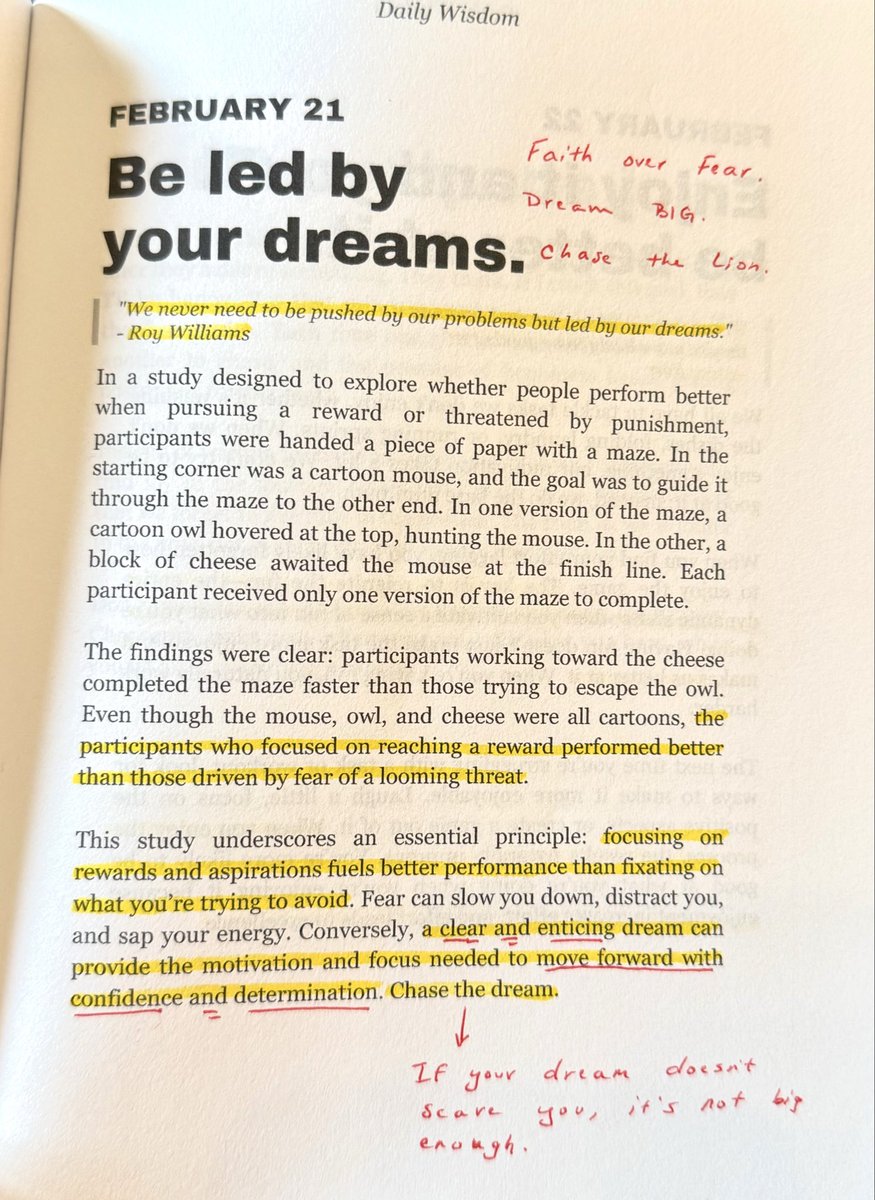 Daily Wisdom
FEBRUARY 21
Be led by
your dreams.
Faith over Fear.
Dream BIG.
Chase the Lion.
"We never need to be pushed by our problems but led by our dreams."
- Roy Williams
In a study designed to explore whether people perform better
when pursuing a reward or threatened by punishment,
participants were handed a piece of paper with a maze. In the
starting corner was a cartoon mouse, and the goal was to guide it
through the maze to the other end. In one version of the maze, a
cartoon owl hovered at the top, hunting the mouse. In the other, a
block of cheese awaited the mouse at the finish line. Each
participant received only one version of the maze to complete.
The findings were clear: participants working toward the cheese
completed the maze faster than those trying to escape the owl.
Even though the mouse, owl, and cheese were all cartoons, the
participants who focused on reaching a reward performed better
than those driven by fear of a looming threat.
This study underscores an essential principle: focusing on
rewards and aspirations fuels better performance than fixating on
what you're trying to avoid. Fear can slow you down, distract you,
and sap your energy. Conversely, a clear and enticing dream can
provide the motivation and focus needed to move forward with
confidence and determination. Chase the dream.
If your dream doesn't
scare you, it's not big
enough.